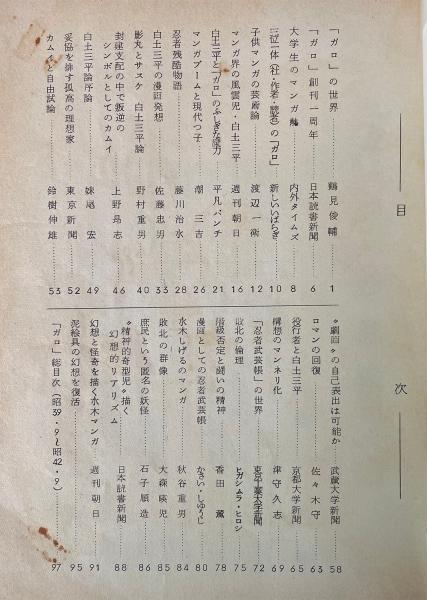 目次
「ガロ」の世界 鶴見俊輔 1
「ガロ」創刊一周年 日本読書新聞 6
大学生のマンガ熱 内外タイムズ 8
三位一体(社・作者・読者)の「ガロ」 新しいいばらぎ 10
子供マンガの芸術論 渡辺一衛 12
マンガ界の風雲児・白土三平 週刊朝日 16
白土三平と「ガロ」のふしぎな魔力 平凡パンチ 21
マンガブームと現代っ子 潮三吉 26
忍者残酷物語 藤川治水 28
白土三平の漫画発想 佐藤忠男 33
影丸とサスケ 白土三平論 野村重男 40
封建支配の中で叛逆の
シンボルとしてのカムイ 上野昂志 46
白土三平序論 妹尾宏 49
妥協を排す孤高の理想家 東京新聞 52
カムイと自由試論 鈴樹伸雄 53
“劇画”の自己表出は可能か 武蔵大学新聞 58
ロマンの回復 佐々木守 63
役行者と白土三平 京都大学新聞 65
構想のマンネリ化 津守久志 69
「忍者武芸帳」の世界 東京工業大学新聞 72
敗北の倫理 ヒガシムラ・ヒロシ 75
階級否定と闘いの精神 香田薫 78
漫画としての忍者武芸帳 かさい・しゆうじ 80
水木しげるのマンガ 秋谷重男 84
敗北の群像 大森暎児 85
庶民という匿名の妖怪 石子順造 86
“精神的奇型児”描く
幻想的リアリズム 日本読書新聞 88
幻想と怪奇を描く水木マンガ 週刊朝日 91
泥絵具の幻想を復活 95
「ガロ」総目次(昭39・9〜昭42・9) 97